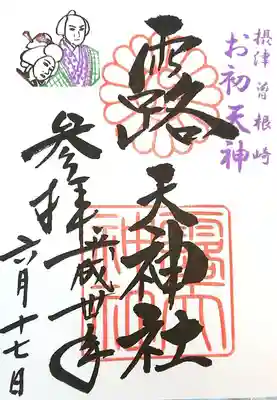 摂津曽根崎
お初天神
露天神社
参拝
平成卅年
六月十七日